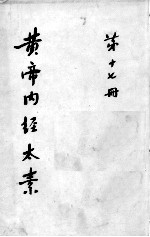 第十七冊
黄帝内経太素